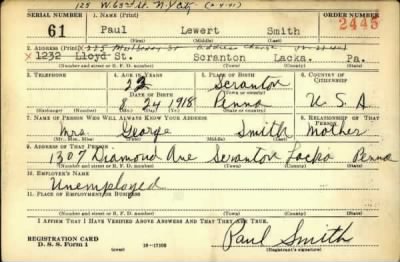 125 W 63rd St. N.Y. City (2-4-41)
SERIAL NUMBER 1. NAME (Print) ORDER NUMBER
61 Paul Lewert Smith 2445
(First) (Middle) (Last)
2. ADDRESS (Print) 225 St. Address Change
1232 Lloyd St. Scranton Lacka. Pa.
(Number and street or R. F. D. number) (Town) (County) (State)
3. TELEPHONE 4. AGE IN YEARS 5. PLACE OF BIRTH 6. COUNTRY OF CITIZENSHIP
22 Scranton
DATE OF BIRTH (Town or county)
8 24 1918 Penna U.S.A
(Exchange) (Number) (Mo.) (Day) (Yr.) (State or country)
7. NAME OF PERSON WHO WILL ALWAYS KNOW YOUR ADDRESS 8. RELATIONSHIP OF THAT PERSON
Mrs. George Smith Mother
(Mr., Mrs., Miss) (First) (Middle) (Last)
9. ADDRESS OF THAT PERSON
1307 Diamond Ave Scranton Lacka Penna
(Number and street or R. F. D. number) (Town) (County) (State)
10. EMPLOYER'S NAME
Unemployed
11. PLACE OF EMPLOYMENT OR BUSINESS
(Number and street or R. F. D. number) (Town) (County) (State)
I AFFIRM THAT I HAVE VERIFIED ABOVE ANSWERS AND THAT THEY ARE TRUE.
REGISTRATION CARD
D. S. S. Form 1 (over) 16—17105 Paul Smith
(Registrant's signature)